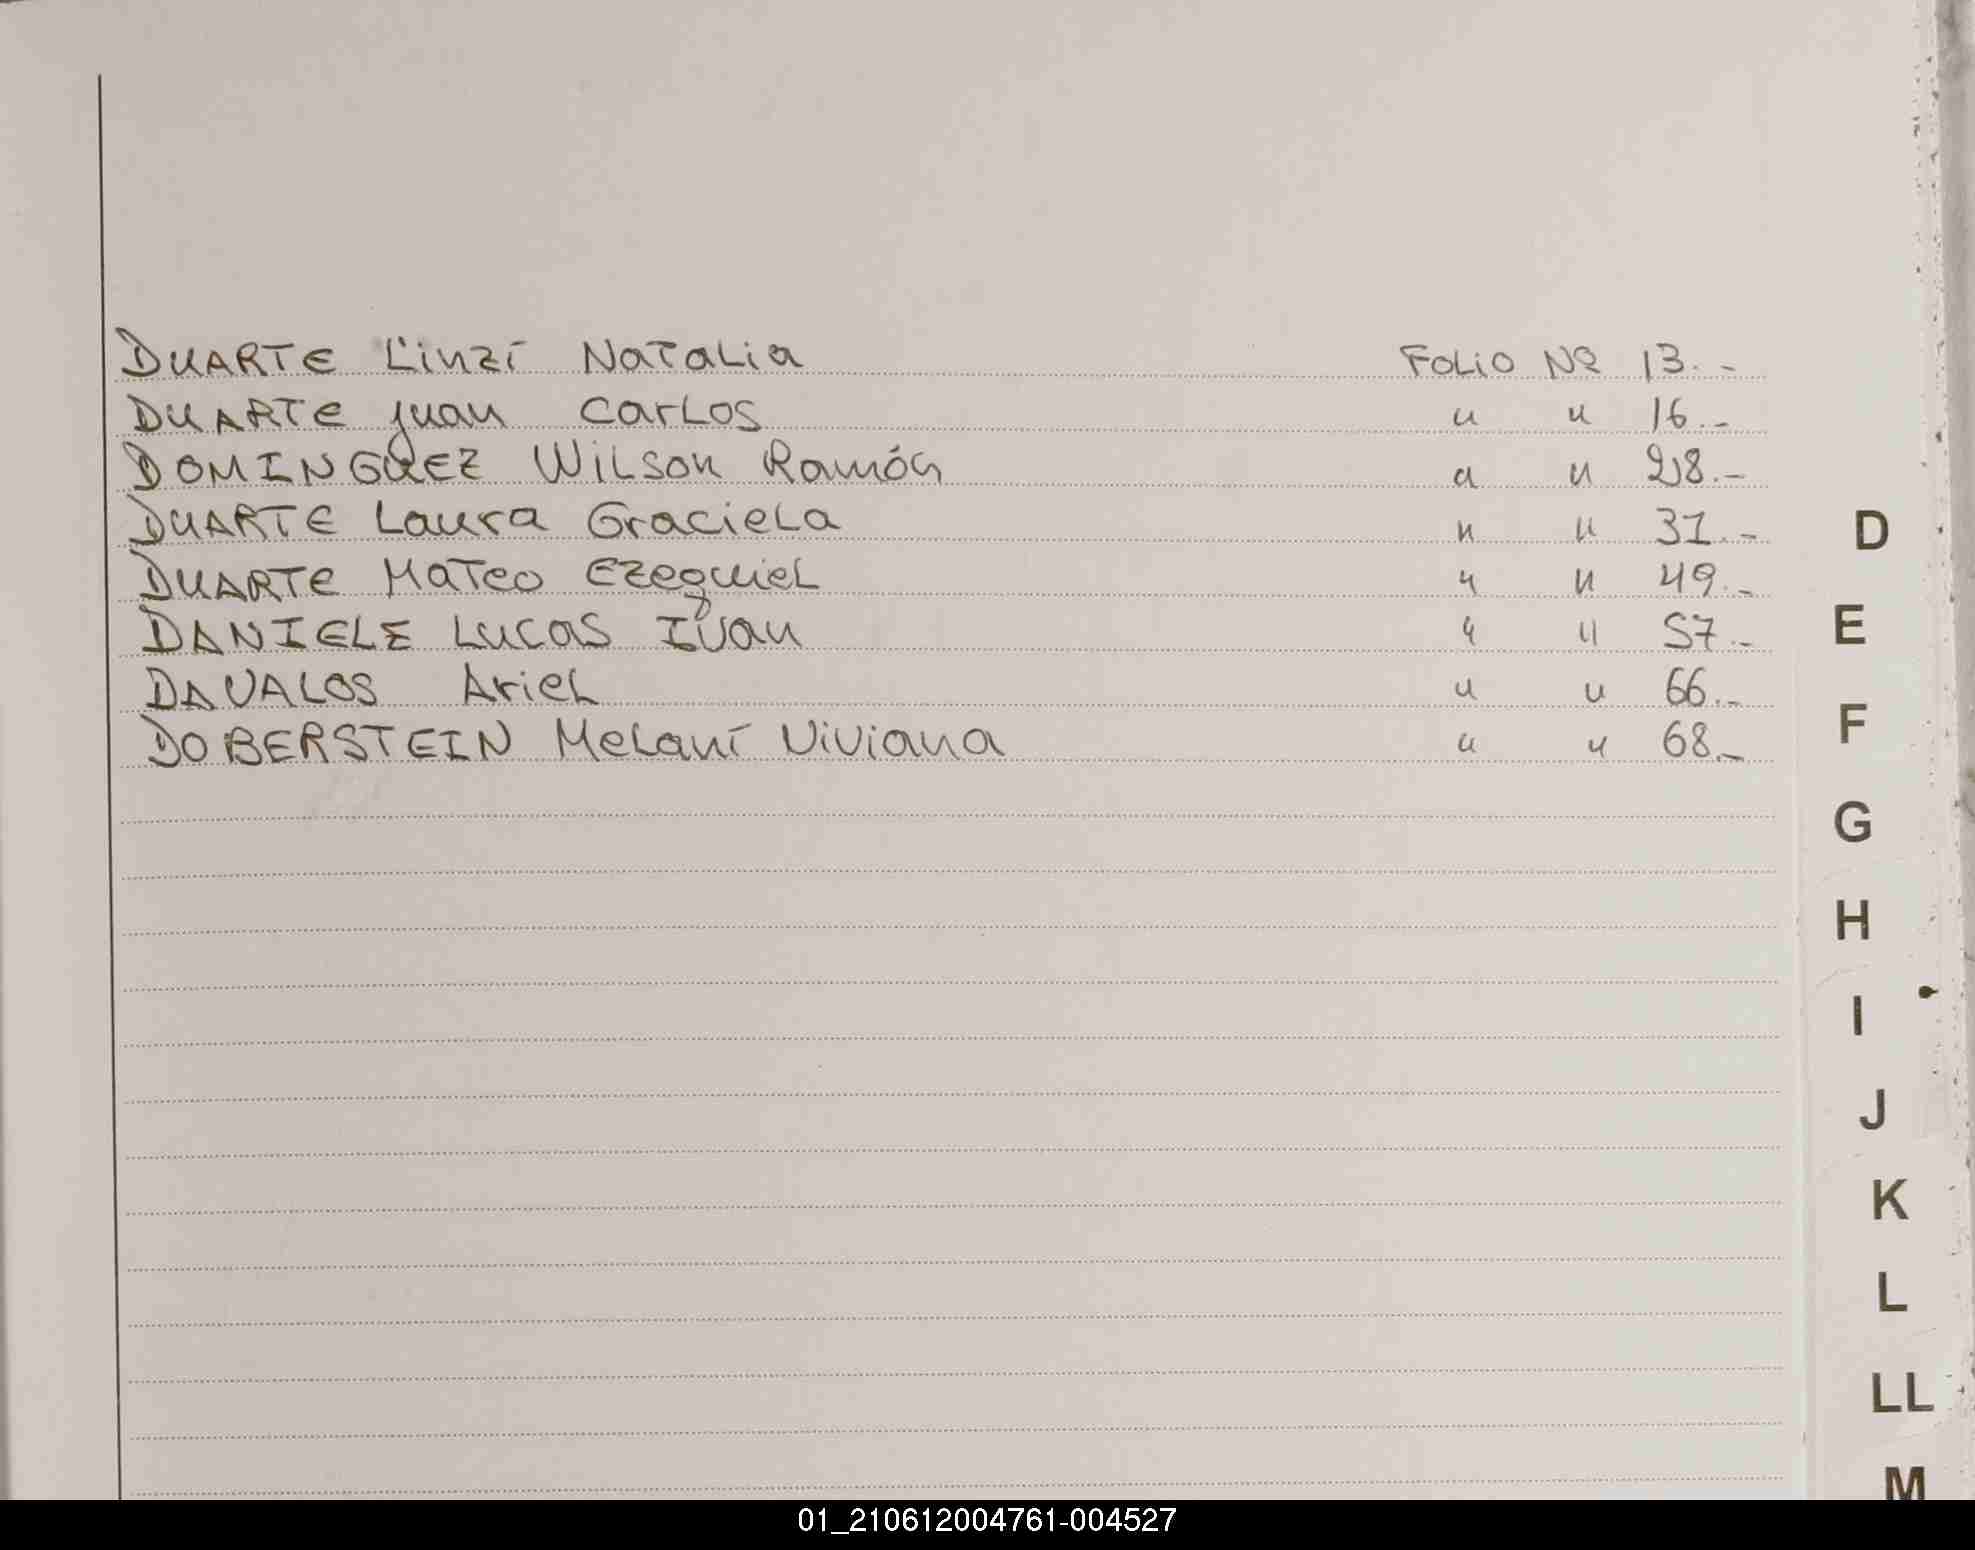 DUARTE Linzi Natalia Folio Nº 13.-
DUARTE Juan Carlos " " 16.-
DOMINGUEZ Wilson Ramón " " 28.-
DUARTE Laura Graciela " " 31.-
DUARTE Mateo Ezequiel " " 49.-
DANIELE Lucas Ivan " " 57.-
DAVALOS Ariel " " 66.-
DOBERSTEIN Melani Viviana " " 68.-
D
E
F
G
H
I
J
K
L
LL
M
01_210612004761-004527